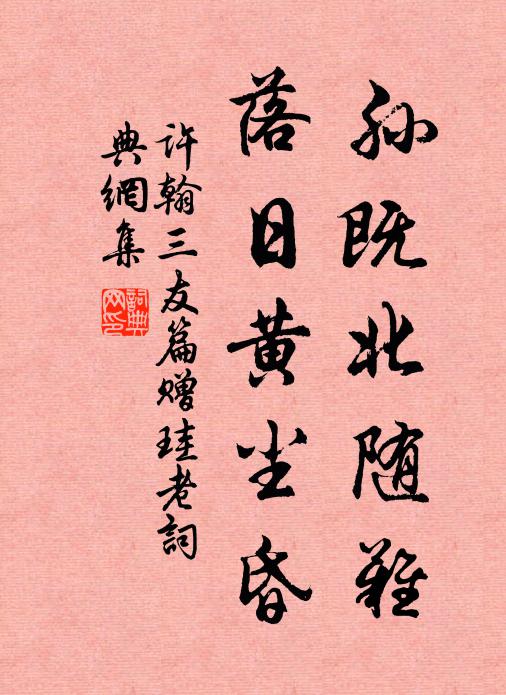 孙既北随难
落日黄尘昏
许翰三友篇赠珪老词
典網集
詞典網印